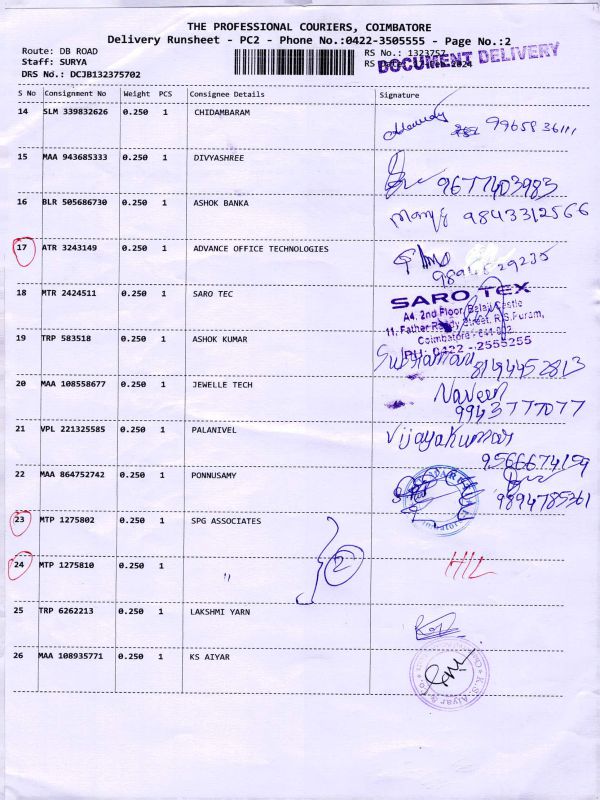 THE PROFESSIONAL COURIERS, COIMBATORE
Delivery Runsheet - PC2 - Phone No.:0422-3505555 - Page No.:2
Route: DB ROAD
Staff: SURYA
DRS No.: DCJB132375702
RS No.: 1323757
RS
DOCUMENT DELIVERY
S No Consignment No Weight PCS Consignee Details Signature
14 SLM 339832626 0.250 1 CHIDAMBARAM
9965836111
15 MAA 943685333 0.250 1 DIVYASHREE
9677403983
16 BLR 505686730 0.250 1 ASHOK BANKA
9843312566
17 ATR 3243149 0.250 1 ADVANCE OFFICE TECHNOLOGIES
18 MTR 2424511 0.250 1 SARO TEC
SARO TEX
A4, 2nd Floor, Balaji Castle
11, Father Randy Street, R.S.Puram,
Coimbatore - 641 002.
PH: 0422 - 2555255
19 TRP 583518 0.250 1 ASHOK KUMAR
8144452813
20 MAA 108558677 0.250 1 JEWELLE TECH
Naveen
9943777077
21 VPL 221325585 0.250 1 PALANIVEL
Vijayakumar
9566674159
22 MAA 864752742 0.250 1 PONNUSAMY
9894785361
23 MTP 1275802 0.250 1 SPG ASSOCIATES
2
24 MTP 1275810 0.250 1 "
25 TRP 6262213 0.250 1 LAKSHMI YARN
26 MAA 108935771 0.250 1 KS AIYAR
K.S. Aiyar & Co.